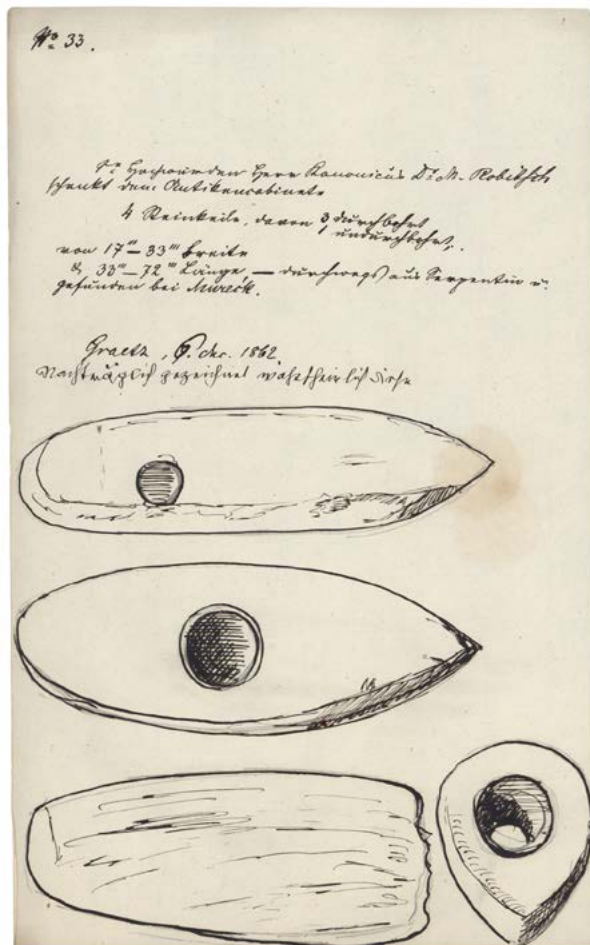 Nº 33.
Sr Hochwürden Herr Kanonicus Dr. M. Robitsch
schenkt dem Antikencabinete
4 Steinkeile, davon 3 durchbohrt
1 undurchbohrt,
von 17''' – 33''' Breite
& 33''' – 72''' Länge, – durchwegs aus Serpentin u.
gefunden bei Mureck.
Graetz, 6. dec. 1862.
Nachträglich gezeichnet wahrscheinlich diese